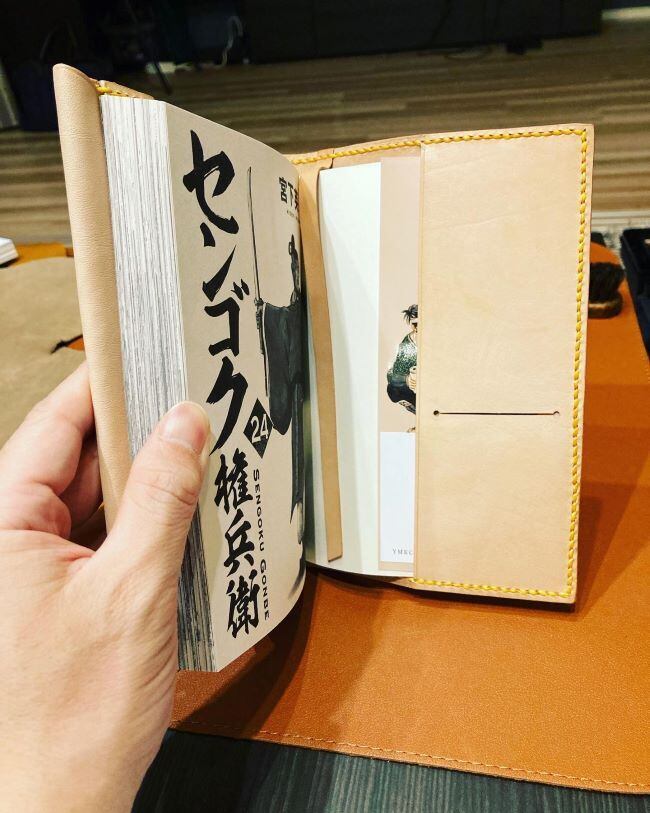 センゴク権兵衛
24
SENGOKU GONBE
宮下
YMKC